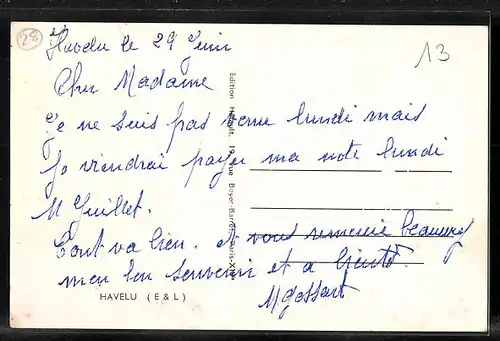 28
Havelu le 29 Juin
13
Cher Madame
Je ne suis pas venue lundi mais
Je viendrai payer ma note lundi
11 Juillet.
Tout va bien. et vous remercie beaucoup
mon bon souvenir et a bientôt.
HAVELU (E & L)
Edition Rue Boyer-Barret, Paris-XIV